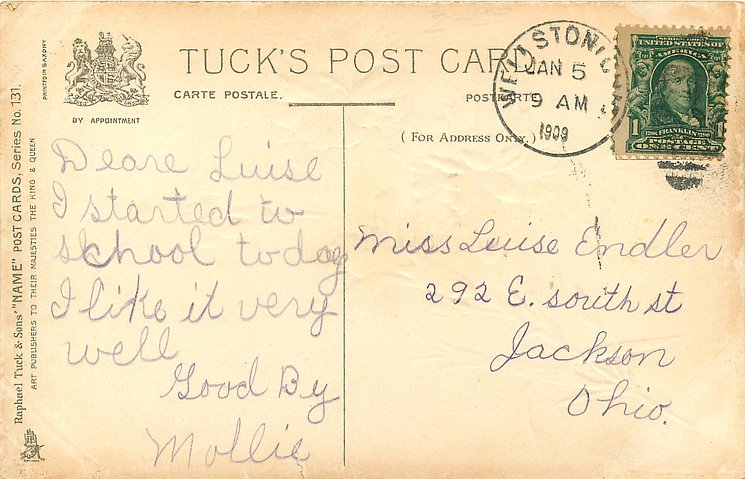 TUCK'S POST CARD
CARTE POSTALE.
POSTKARTE
(FOR ADDRESS ONLY.)
BY APPOINTMENT
PRINTED IN SAXONY
Raphael Tuck & Sons' "NAME" POST CARDS, Series No. 131.
ART PUBLISHERS TO THEIR MAJESTIES THE KING & QUEEN
WELLSTON, O
JAN 5
9 AM
1909
SERIES 1902
UNITED STATES OF
AMERICA
1 FRANKLIN
POSTAGE
ONE CENT
Deare Luise
I started to
school today
I like it very
well
Good By
Mollie
Miss Luise Endler
292 E. south st
Jackson
Ohio.